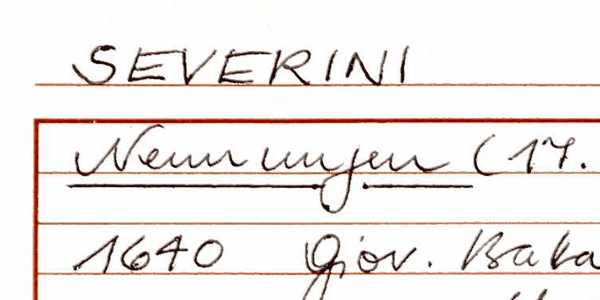 SEVERINI
Nennungen (17.
1640 Giov. Bata